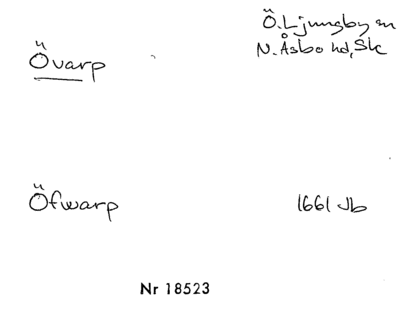 Övarp
Ö. Ljungby sn
N. Åsbo hd, Sk
Öfwarp
1661 Jb
Nr 18523